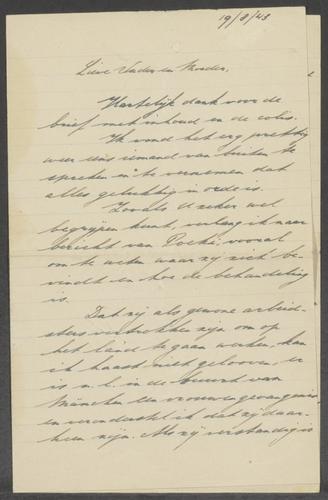 19/8/43
Lieve Vader en Moeder,
Hartelijk dank voor de
brief met inhoud en de colis.
Ik vond het erg prettig
weer eens iemand van buiten te
spreken en te vernemen dat
alles gelukkig in orde is.
Zooals U zeker wel
begrijpen kunt, verlang ik naar
bericht van, vooral
om te weten waar zij zich be-
vindt en hoe de behandeling
is.
Dat zij als gewone arbeid-
sters vertrokken zijn om op
het land te gaan werken, kan
ik haast niet gelooven, er
is n.l. in de buurt van
München een vrouwengevangenis
en veronderstel ik dat zij daar-
heen zijn. Als zij verstandig is